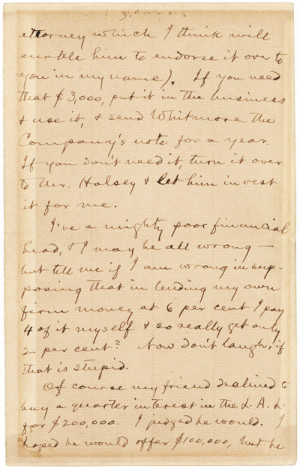 3.
attorney which I think will
enable him to endorse it over to
you in my name). If you need
that $3,000, put it in the business
& use it, & send Whitmore the
Company's note for a year.
If you don't need it, turn it over
to Mr. Halsey & let him invest
it for me.
I've a mighty poor financial
head, & I may be all wrong—
but tell me if I am wrong in sup-
posing that in lending my own
firm money at 6 per cent I pay
4 of it myself & so really get only
2 per cent? Now don't laugh if
that is stupid.
Of course my friend declined to
buy a quarter interest in the L. A. L.
for $200,000. I judged he would. I
hoped he would offer $100,000, but he